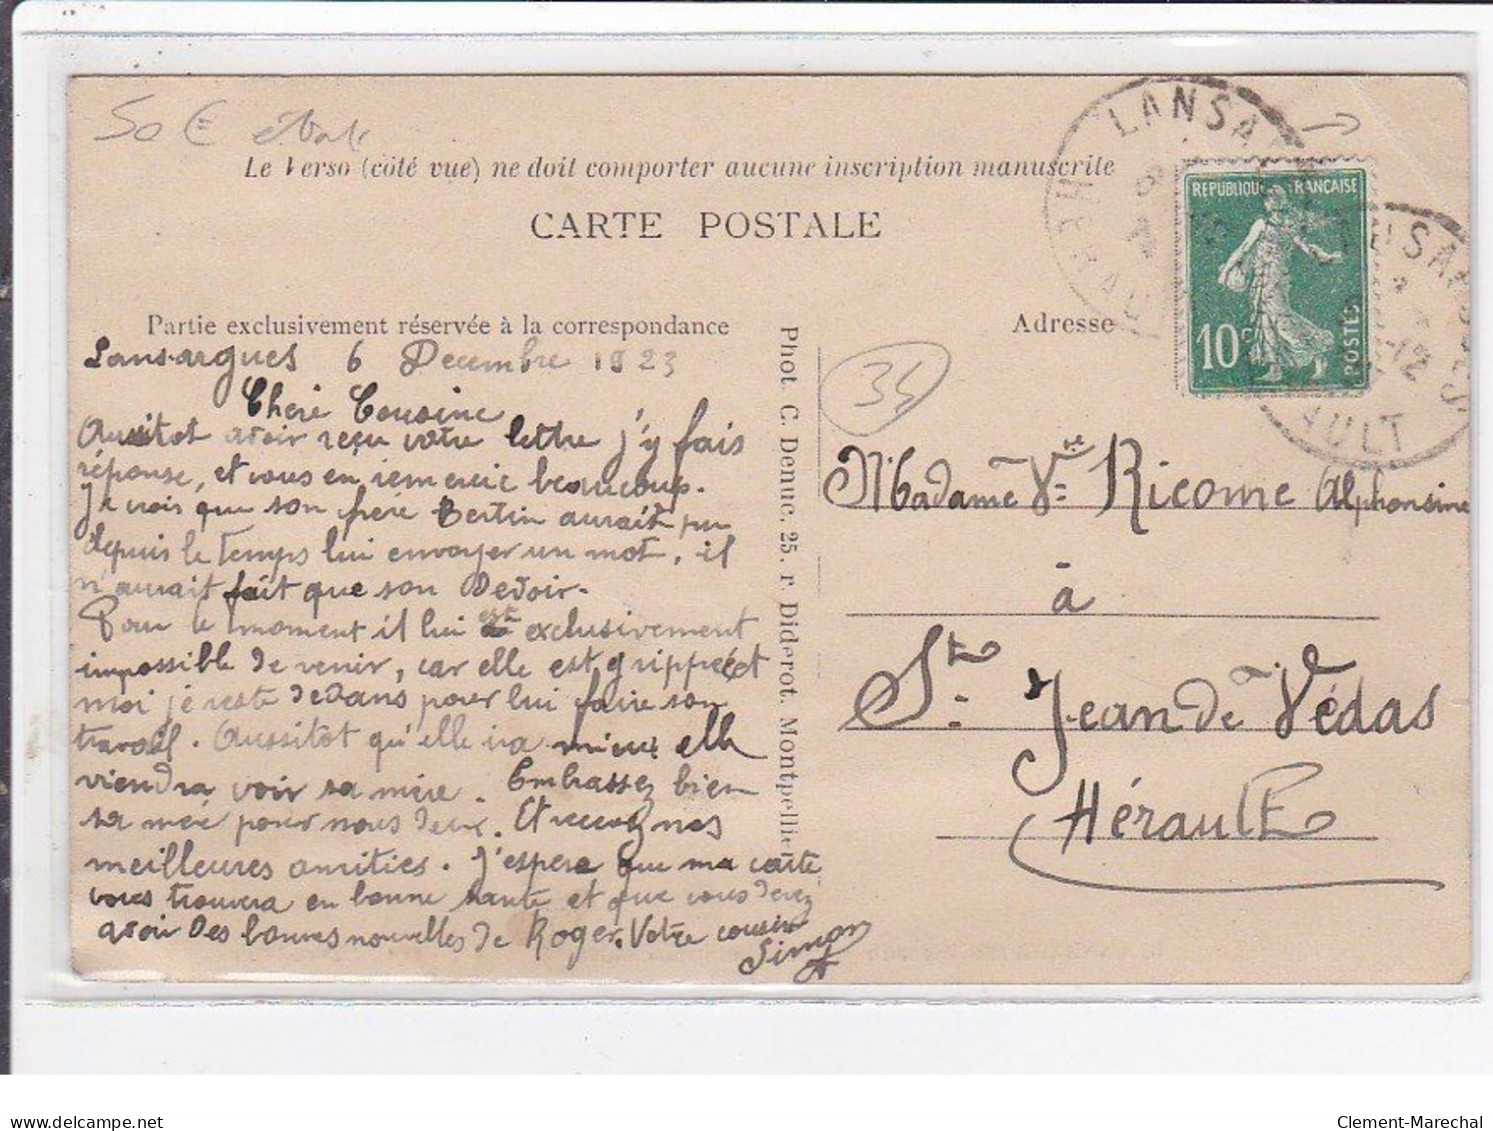 50 €
Le Verso (côté vue) ne doit comporter aucune inscription manuscrite
CARTE POSTALE
LANSARGUES
HERAULT
REPUBLIQUE FRANÇAISE
10c
POSTES
LANSARGUES
HERAULT
Partie exclusivement réservée à la correspondance
Adresse
Lansargues 6 Decembre 1923
Cheré Cousine
Aussitot avoir reçu votre lettre j'y fais
réponse, et vous en remercie beaucoup.
Je crois que son frére Bertin aurait pu
depuis le temps lui envoyer un mot, il
n'aurait fait que son Devoir.
Pour le moment il lui est exclusivement
impossible de venir, car elle est grippée et
moi je reste dedans pour lui faire son
travail. Aussitot qu'elle ira mieux elle
viendra voir sa mère. Embrassez bien
sa mère pour nous deux. Et recevez nos
meilleures amities. J'espere que ma carte
vous trouvera en bonne santé et que vous devez
avoir des bonnes nouvelles de Roger. Votre cousin
Simon
Phot. C. Denuc, 25, r. Diderot. Montpellier
34
Madame Vve Ricome Alphonsine
à
St. Jean de Védas
Hérault
Clement-Marechal
www.delcampe.net